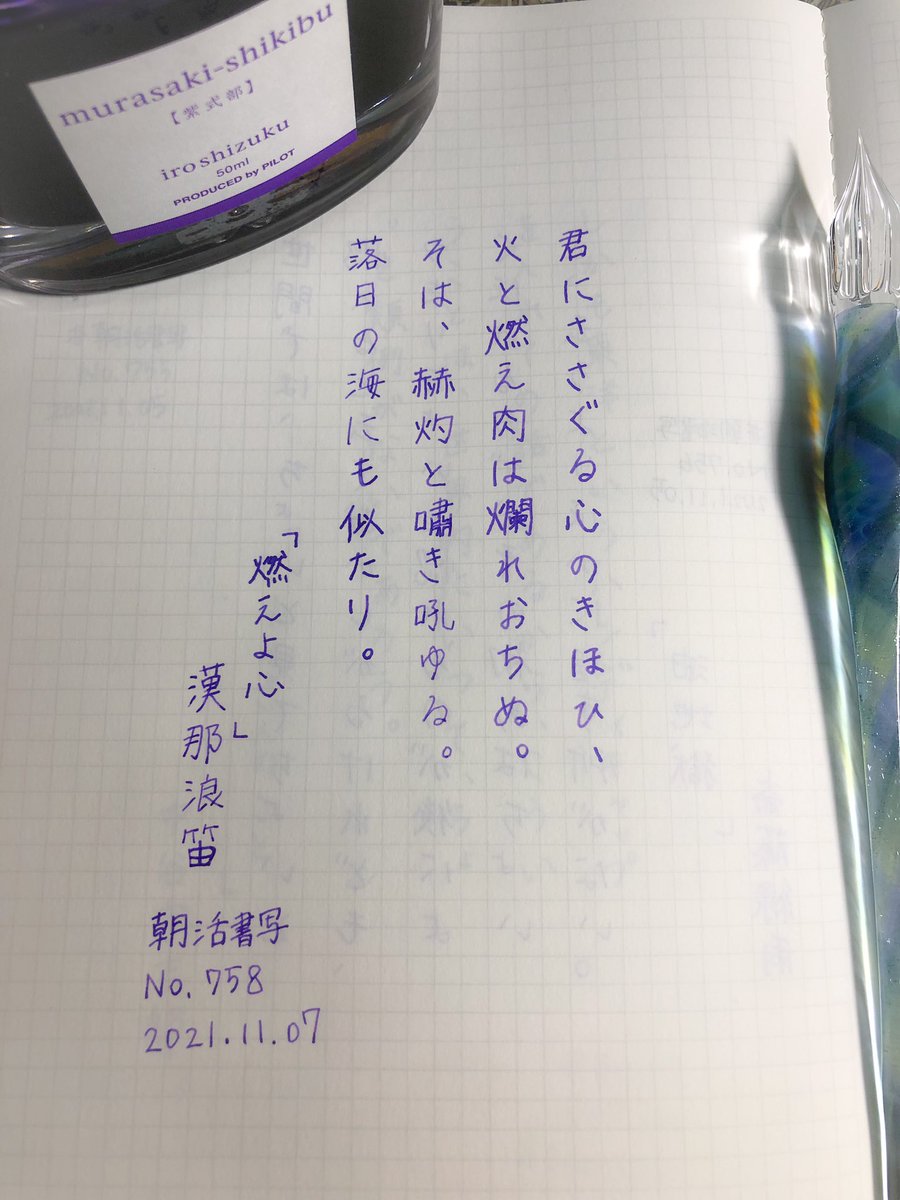 murasaki-shikibu
【紫式部】
iroshizuku
50ml
PRODUCED by PILOT
君にささぐる心のきほひ、
火と燃え肉は爛れおちぬ。
そは、赫灼と嘯き吼ゆる。
落日の海にも似たり。
「燃えよ心」
漢那浪笛
朝活書写
No.758
2021.11.07